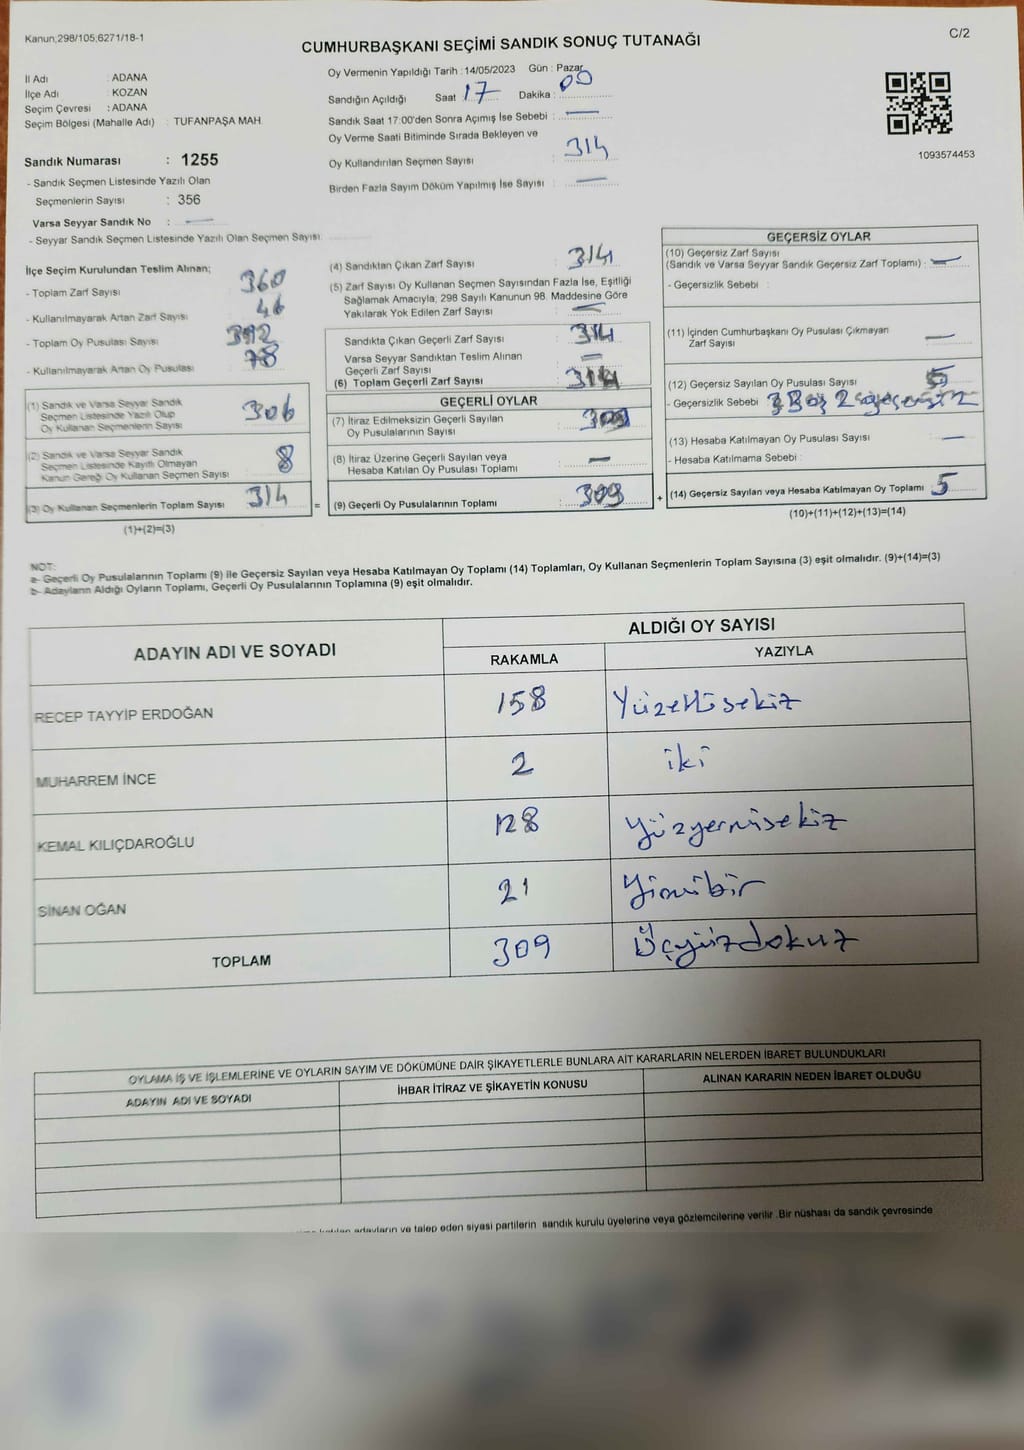 Kanun;298/105;6271/18-1
C/2
CUMHURBAŞKANI SEÇİMİ SANDIK SONUÇ TUTANAĞI
İl Adı : ADANA
İlçe Adı : KOZAN
Seçim Çevresi : ADANA
Seçim Bölgesi (Mahalle Adı) : TUFANPAŞA MAH.
Sandık Numarası : 1255
- Sandık Seçmen Listesinde Yazılı Olan
Seçmenlerin Sayısı : 356
Varsa Seyyar Sandık No : —
- Seyyar Sandık Seçmen Listesinde Yazılı Olan Seçmen Sayısı:
Oy Vermenin Yapıldığı Tarih : 14/05/2023 Gün : Pazar
Sandığın Açıldığı Saat : 17 Dakika : 00
Sandık Saat 17:00'den Sonra Açımış İse Sebebi : —
Oy Verme Saati Bitiminde Sırada Bekleyen ve
Oy Kullandırılan Seçmen Sayısı : 314
Birden Fazla Sayım Döküm Yapılmış İse Sayısı : —
1093574453
İlçe Seçim Kurulundan Teslim Alınan;
- Toplam Zarf Sayısı : 360
- Kullanılmayarak Artan Zarf Sayısı : 46
- Toplam Oy Pusulası Sayısı : 392
- Kullanılmayarak Artan Oy Pusulası : 78
(1) Sandık ve Varsa Seyyar Sandık
Seçmen Listesinde Yazılı Olup
Oy Kullanan Seçmenlerin Sayısı : 306
(2) Sandık ve Varsa Seyyar Sandık
Seçmen Listesinde Kayıtlı Olmayan
Kanun Gereği Oy Kullanan Seçmen Sayısı : 8
(3) Oy Kullanan Seçmenlerin Toplam Sayısı : 314 =
(1)+(2)=(3)
(4) Sandıktan Çıkan Zarf Sayısı : 314
(5) Zarf Sayısı Oy Kullanan Seçmen Sayısından Fazla İse, Eşitliği
Sağlamak Amacıyla, 298 Sayılı Kanunun 98. Maddesine Göre
Yakılarak Yok Edilen Zarf Sayısı : —
Sandıkta Çıkan Geçerli Zarf Sayısı : 314
Varsa Seyyar Sandıktan Teslim Alınan
Geçerli Zarf Sayısı : —
(6) Toplam Geçerli Zarf Sayısı : 314
GEÇERLİ OYLAR
(7) İtiraz Edilmeksizin Geçerli Sayılan
Oy Pusulalarının Sayısı : 309
(8) İtiraz Üzerine Geçerli Sayılan veya
Hesaba Katılan Oy Pusulası Toplamı : —
(9) Geçerli Oy Pusulalarının Toplamı : 309 +
GEÇERSİZ OYLAR
(10) Geçersiz Zarf Sayısı
(Sandık ve Varsa Seyyar Sandık Geçersiz Zarf Toplamı) : —
- Geçersizlik Sebebi :
(11) İçinden Cumhurbaşkanı Oy Pusulası Çıkmayan
Zarf Sayısı : —
(12) Geçersiz Sayılan Oy Pusulası Sayısı : 5
- Geçersizlik Sebebi :
(13) Hesaba Katılmayan Oy Pusulası Sayısı : —
- Hesaba Katılmama Sebebi :
(14) Geçersiz Sayılan veya Hesaba Katılmayan Oy Toplamı : 5
(10)+(11)+(12)+(13)=(14)
NOT:
a- Geçerli Oy Pusulalarının Toplamı (9) ile Geçersiz Sayılan veya Hesaba Katılmayan Oy Toplamı (14) Toplamları, Oy Kullanan Seçmenlerin Toplam Sayısına (3) eşit olmalıdır. (9)+(14)=(3)
b- Adayların Aldığı Oyların Toplamı, Geçerli Oy Pusulalarının Toplamına (9) eşit olmalıdır.
ADAYIN ADI VE SOYADI
ALDIĞI OY SAYISI
RAKAMLA YAZIYLA
RECEP TAYYİP ERDOĞAN 158 Yüzellisekiz
MUHARREM İNCE 2 iki
KEMAL KILIÇDAROĞLU 128 Yüzyermisekiz
SİNAN OĞAN 21 Yirmibir
TOPLAM 309 Üçyüzdokuz
OYLAMA İŞ VE İŞLEMLERİNE VE OYLARIN SAYIM VE DÖKÜMÜNE DAİR ŞİKAYETLERLE BUNLARA AİT KARARLARIN NELERDEN İBARET BULUNDUKLARI
ADAYIN ADI VE SOYADI İHBAR İTİRAZ VE ŞİKAYETİN KONUSU ALINAN KARARIN NEDEN İBARET OLDUĞU
adayların ve talep eden siyasi partilerin sandık kurulu üyelerine veya gözlemcilerine verilir .Bir nüshası da sandık çevresinde